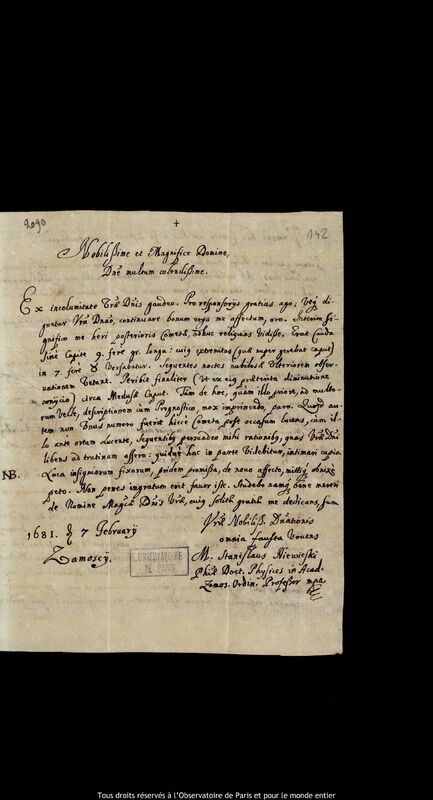 2090
142
Nobilissime et Magnifice Domine,
Dne multum colendissime.
Ex incolumitate Vrae Dnis gaudeo. Pro responsorys gratias ago; Utq. di-
gnetur Vra Dnao, continuare bonum erga me affectum, oro. Interim si-
gnifico me heri posterioris Cometae, adhuc reliquias vidisse. Erat Cauda
sine Capite 9. fere gr. longa: cuiq extremitas (qua nuper gerebat caput)
in 7. fere ♉ versabatur. Sequentes noctes nubilosae ulteriorem obser-
vationem vetant. Peribit finaliter (ut ex eiq praeterita diminutione
conycio) circa Medusae Caput. Tam de hoc, quam illo priore, ad multo-
rum velle, descriptionem cum Prognostico, mox imprimendo, paro. Quod au-
tem non unus numero fuerit hicce Cometa post occasum lucens, cum il-
lo ante ortum lucente, sequentibq persuadeo mihi rationibq, quas Vrae Dni
libens ad trutinam offero: quidq. hac in parte videbitur, intimari cupio.
NB. Loca insigniorum fixarum, pridem promissa, de novo affecto, mittiq. obnixe
peto. Non penes ingratum erit favor iste. Studebo namq. bene mereri
de Nomine Magcae Dnis Vrae, cuiq solitae gratiae me dedicans, sum
Vrae Nobiliss. Dnationis
omnia fausta vovens
1681. d 7 February
Zamoscy.
M. Stanislaus Niewieski
Philae Doct. Physices in Acad.
Zamos. Ordin. Professor mpa
OBSERVATOIRE
DE PARIS
Tous droits réservés à l'Observatoire de Paris et pour le monde entier